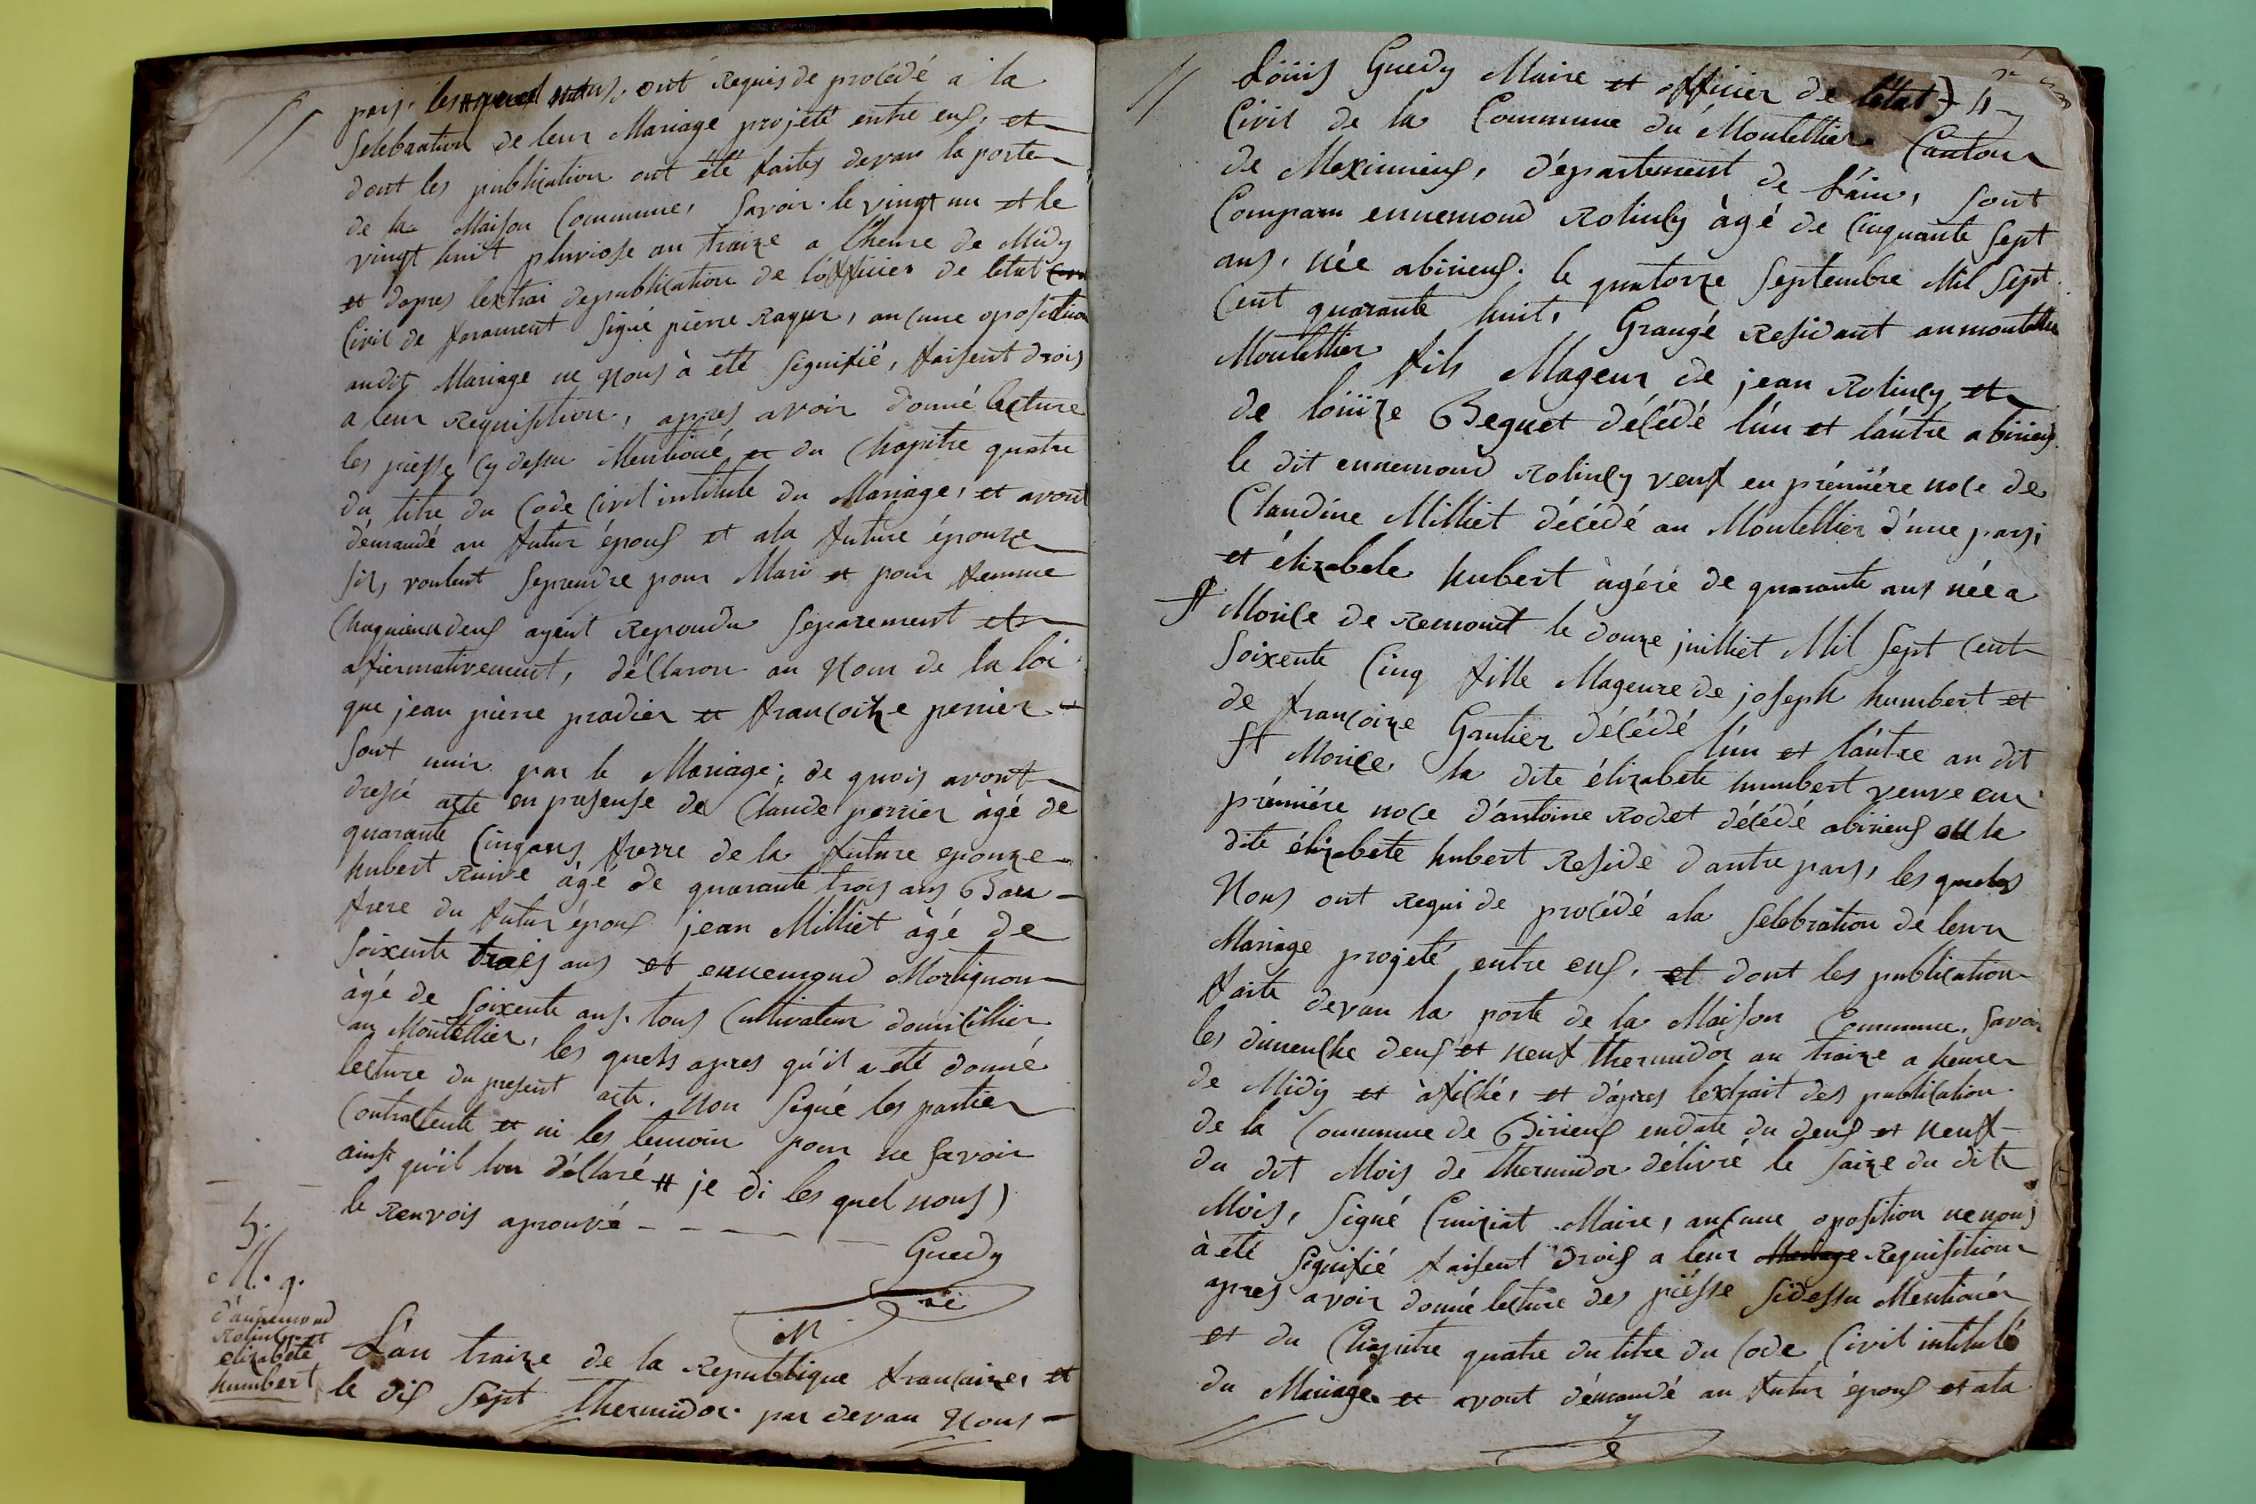 pars. les quel nous ont Requis de procédé a la
Selebration de leur Mariage projeté entre eux, et
dont les publication ont été faites devan la porte
de la Maison Commune, Savoir. le vingt un et le
vingt huit pluviose an traize a l'heure de Midy
et dapres lextrai depublication de lófficier de letat
Civil de farament Signé pierre Rayer, aucune oposition
audit Mariage ne Nous à été Signifié, faisent drois
a leur Requisition, apres avoir donné lecture
les piesse Cy dessu Mentioné et du Chapitre quatre
du titre du Code Civil intitule du Mariage, et avont
démandé au futur époux et ala future épouze
Sils voulent Seprendre pour Mari et pour femme
Chaquieun deux ayent Repondu Séparement et
afiermativement, déclaron au Nom de la loi
que jean pierre pradier et françoize perrier
Sont unir par le Mariage; de quois avont
dressé acte en presense de Claude perrier àgé de
quarante Cinqans frerre de la future epouze
hubert Ruive àgé de quarante trois ans Bau
frere du futur époux jean Milliet àgé de
Soixente trois ans et ennemond Mortignon
àgé de Soixente ans. tous Cultivateur domicillier
au Montellier, les quels apres qu'il a été donné
lecture du present acte. Non Signé les partier
Contractente et ni les temoin pour ne Savoir
ainsi qu'il lon déllaré # je di les quel nous)
le Renvois aprouvé - - - - -
Guedy
M
5.
M. g.
d'annemond
Rolindy et
elizabete
humbert
L'an traize de la Republique francaize, et
le dix Sept thermidor par devan Nous
Loüis Guedy Maire et officier de létat
Civil de la Commune du Montellier Canton
de Meximieux, département de Láin, Sont
Comparu ennemond Rolindy àgé de Cinquante Sept
ans, née abirieux. le quatorze Septembre Mil Sept
Cent quarante huit, Grangé Residant aumontellier
Montellier fils Mageur de jean Rolindy et
de loüize Beguet décédé lún et láutre abirieux
le dit ennemond Rolindy veuf en prémiére noce de
Claudine Milliet décédé au Montellier d'une pars,
et élizabete hubert àgéré de quarante ans née a
St Morice de Remont le douze juilliet Mil Sept Cent
Soixente Cinq fille Mageure de joseph humbert et
de françoize Gautier décédé lún et láutre au dit
St Morice la dite élizabete humbert veuve en
prémiére noce d'antoine Rodet décédé abirieux ou la
dite élizabete hubert Reside dautre pars, les quels
Nous ont requi de procédé ala Selebration de leur
Mariage projeté entre eux, et dont les publication
faite devan la porte de la Maison Commune, Savoir
les dimenche deux et neuf thermidor an traize a heure
de Midy et àfiché, et dápres lextrait des publication
de la Commune de Birieux endate du deux et neuf
du dit Mois de thermidor délivré le Saize du dit
Mois, Signé Cruiziat Maire, aucune oposition ne nous
à été Signifié faisent drois a leur Mariage Requisition
apres avoir donné lecture des piésse Sidessu Mentioner
et du Chapitre quatre dutitre du Code Civil intitulé
du Mariage et avont démandé au futur époux et ala